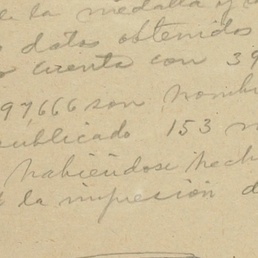 de la medalla y
datos obtenidos
cuenta con 39
97666 son hombre
publicado 153
habiéndose hech
la impresión d